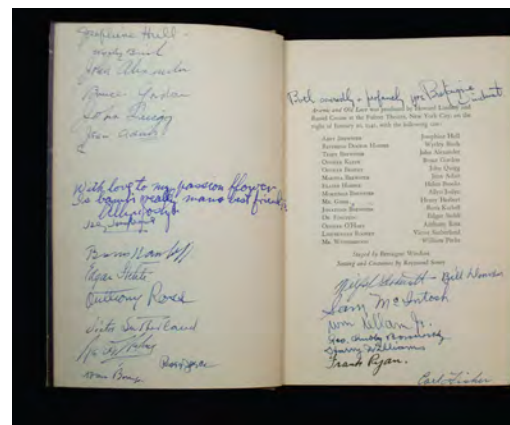 Josephine Hull -
John Alexander
Bruce Gordon
John Quigg
Jean Adair
With love to my passion flower
Is Boris really mans best friend?
Boris Karloff
Edgar Stehli
Anthony Ross
Victor Sutherland
Both sacredly & profanely yours
Arsenic and Old Lace was produced by Howard Lindsay and
Russel Crouse at the Fulton Theatre, New York City, on the
night of January 10, 1941, with the following cast:
Abby Brewster Josephine Hull
Reverend Doctor Harper Wyrley Birch
Teddy Brewster John Alexander
Officer Klein Bruce Gordon
Officer Brophy John Quigg
Martha Brewster Jean Adair
Elaine Harper Helen Brooks
Mortimer Brewster Allyn Joslyn
Mr. Gibbs Henry Herbert
Jonathan Brewster Boris Karloff
Dr. Einstein Edgar Stehli
Officer O'Hara Anthony Ross
Lieutenant Rooney Victor Sutherland
Mr. Witherspoon William Parke
Staged by Bretaigne Windust
Setting and Costumes by Raymond Sovey
Sean McIntosh
Jimmy Williams
Frank Ryan.
Carl Fisher